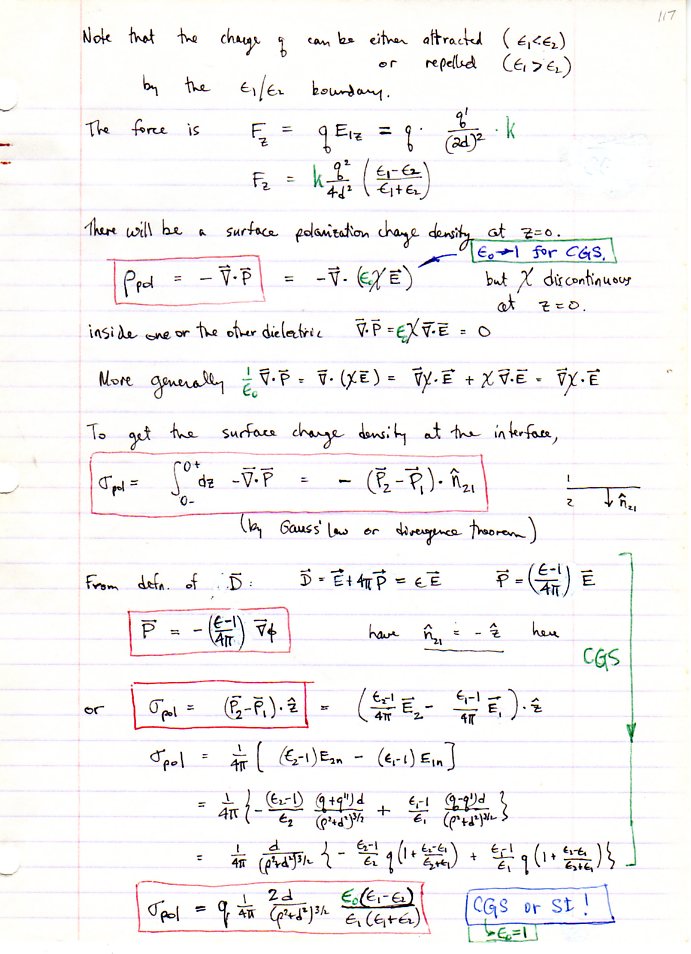 117
Note that the charge q can be either attracted (ϵ₁<ϵ₂)
or repelled (ϵ₁>ϵ₂)
by the ϵ₁/ϵ₂ boundary.
The force is F_z = q E_{1z} = q · q'/(2d)² · k
F_z = k q²/4d² ((ϵ₁-ϵ₂)/(ϵ₁+ϵ₂))
There will be a surface polarization charge density at z=0.
ϵ₀→1 for CGS.
ρ_pol = -∇⃗·P⃗ = -∇⃗·(ϵ₀χE⃗) but χ discontinuous
at z=0.
inside one or the other dielectric ∇⃗·P⃗ = ϵ₀χ∇⃗·E⃗ = 0
More generally 1/ϵ₀ ∇⃗·P⃗ = ∇⃗·(χE⃗) = ∇⃗χ·E⃗ + χ∇⃗·E⃗ = ∇⃗χ·E⃗
To get the surface charge density at the interface,
σ_pol = ∫_{0-}^{0+} dz -∇⃗·P⃗ = -(P⃗₂-P⃗₁)·n̂₂₁
1
2 n̂₂₁
(by Gauss' Law or divergence theorem)
From defn. of D⃗: D⃗ = E⃗+4πP⃗ = ϵE⃗ P⃗ = ((ϵ-1)/4π) E⃗
P⃗ = -((ϵ-1)/4π) ∇⃗ϕ have n̂₂₁ = -ẑ here
CGS
or σ_pol = (P⃗₂-P⃗₁)·ẑ = ((ϵ₂-1)/4π E⃗₂ - (ϵ₁-1)/4π E⃗₁)·ẑ
σ_pol = 1/4π [(ϵ₂-1)E₂ₙ - (ϵ₁-1)E₁ₙ]
= 1/4π {-(ϵ₂-1)/ϵ₂ (q+q'')d/(ρ²+d²)^{3/2} + (ϵ₁-1)/ϵ₁ (q-q')d/(ρ²+d²)^{3/2}}
= 1/4π d/(ρ²+d²)^{3/2} {-(ϵ₂-1)/ϵ₂ q(1+(ϵ₂-ϵ₁)/(ϵ₂+ϵ₁)) + (ϵ₁-1)/ϵ₁ q(1+(ϵ₂-ϵ₁)/(ϵ₂+ϵ₁))}
σ_pol = q 1/4π 2d/(ρ²+d²)^{3/2} ϵ₀(ϵ₁-ϵ₂)/ϵ₁(ϵ₁+ϵ₂) CGS or SI!
↳ϵ₀=1